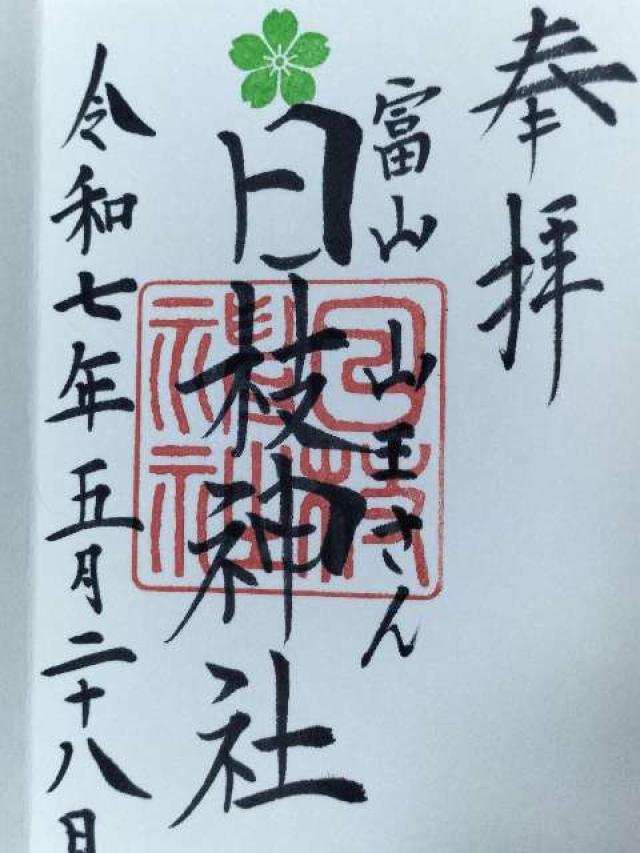 奉拝
富山 山王さん
日枝神社
令和七年五月二十八日